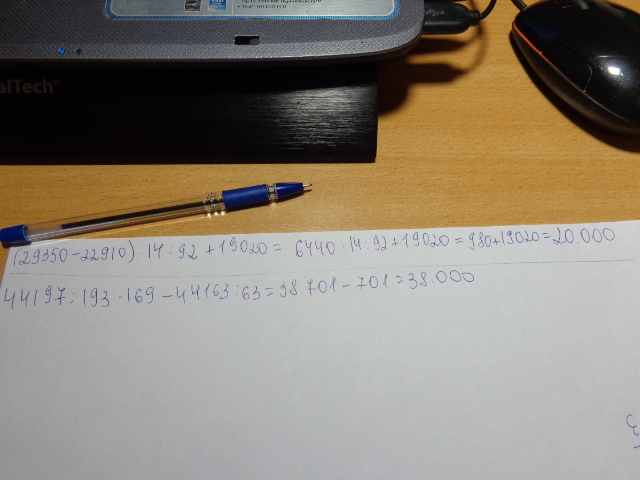 alTech®
(29350-22910)·14:92+19020= 6440·14:92+19020=980+19020=20.000
44197:193·169-44163:63=38.701-701=38.000